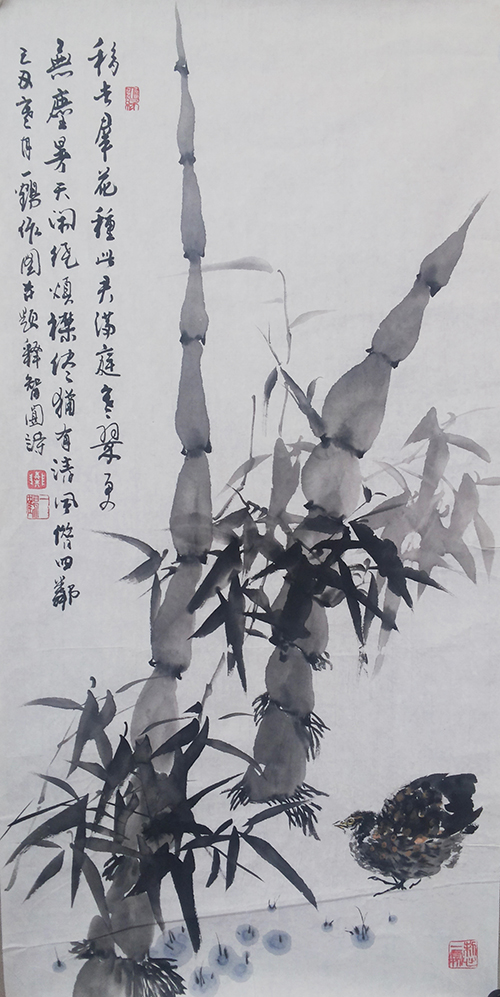 移去群花種此君滿庭寒翠更
無塵暑天闲繞煩襟尽猶有清風借四鄰
己丑寒月一鶴作图並题釋智圓詩